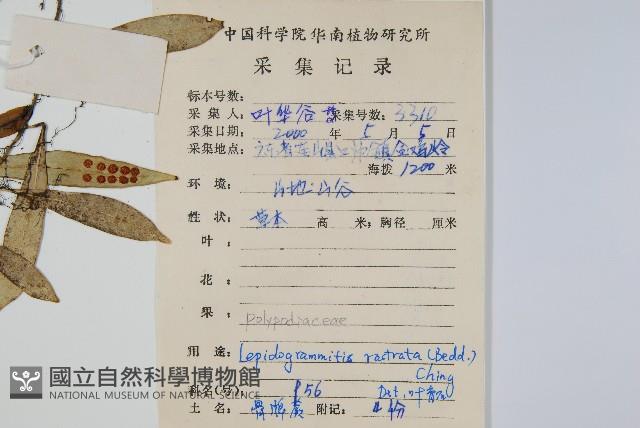 中国科学院华南植物研究所
采集记录
标本号数:
采集人: 叶华谷 采集号数: 3310
采集日期: 2000 年 5 月 5 日
采集地点:
海拨 1200 米
环境: 山地山谷
性状: 草本 高 米; 胸径 厘米
叶:
花:
果: polypodiaceae
用途: Lepidogrammitis rostrata (Bedd.)
Ching
科名(号) P56 Det. 叶
土名: 骨牌蕨 附记: 4份
國立自然科學博物館
NATIONAL MUSEUM OF NATURAL SCIENCE